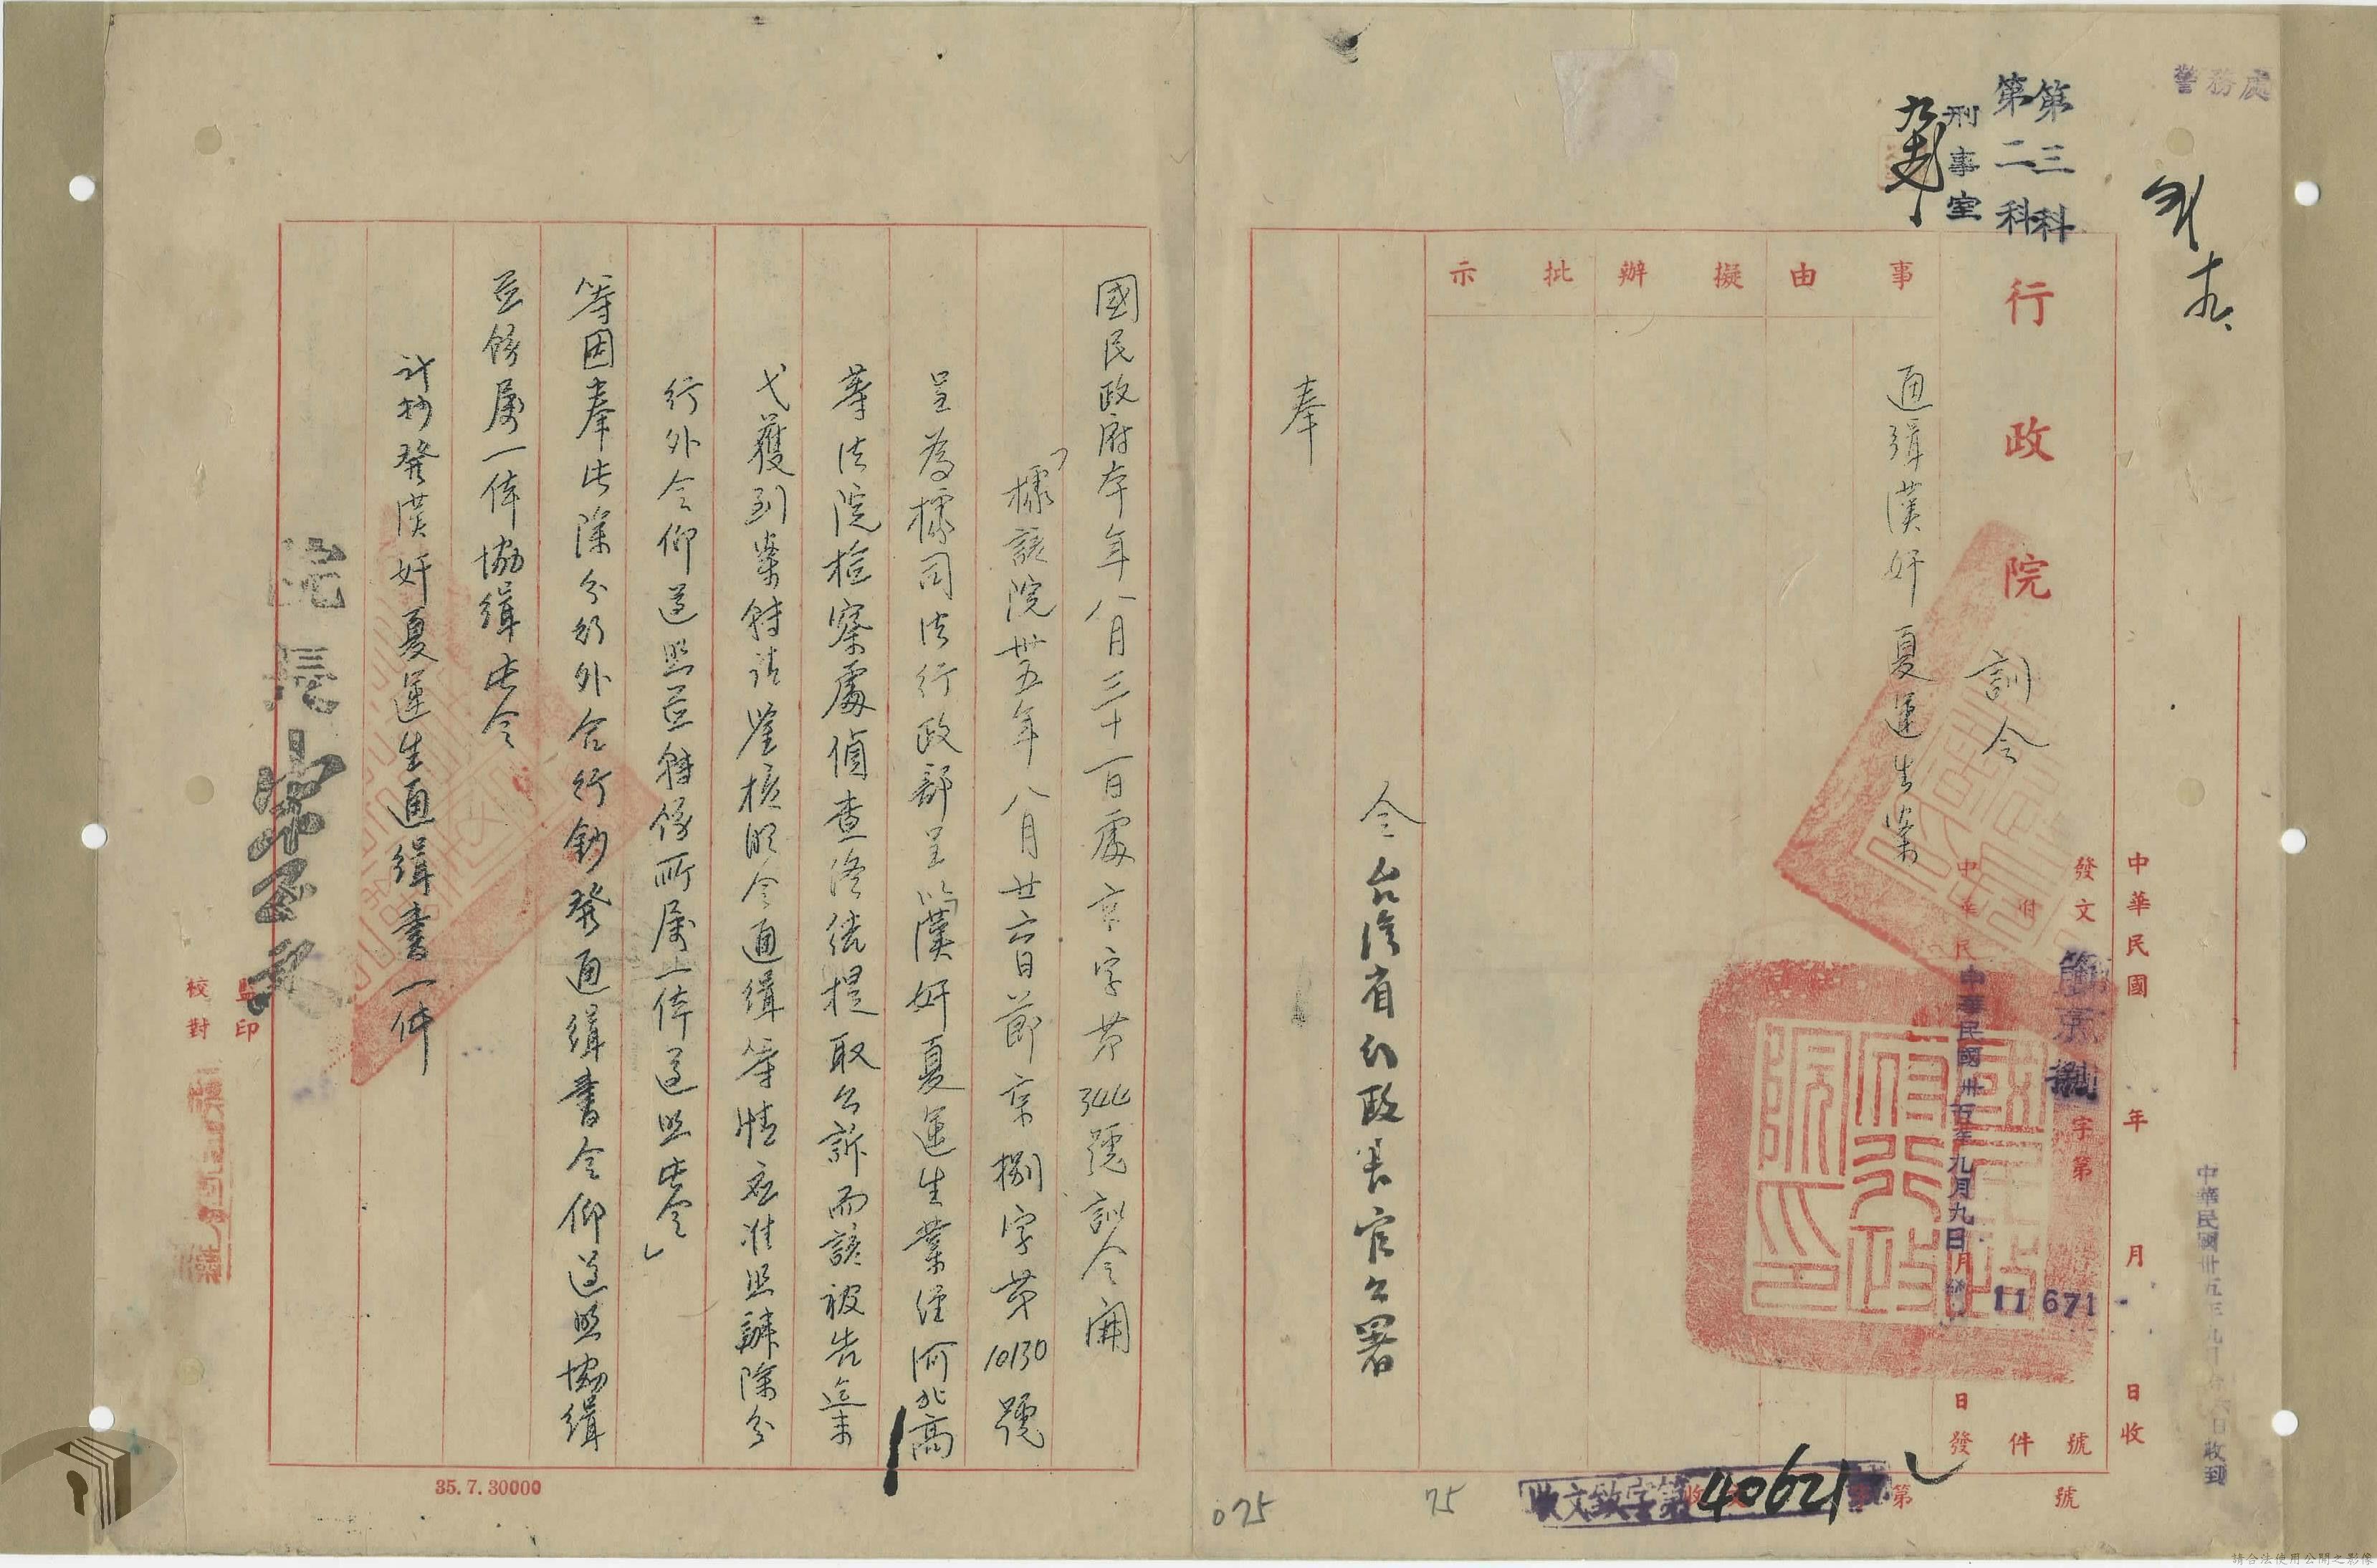 警務處
第三科
第二科
刑事室
行政院
訓令
中華民國 年 月 日收
發文
節京捌字第11671號
附 件
中華民國卅五年九月九日發
事由
擬辦
批示
通緝漢奸夏運生案
令台灣省行政長官公署
奉
國民政府本年八月三十一日處京字第344號訓令開
「據該院卅五年八月廿六日節京捌字第10130號
呈為據司法行政部呈以漢奸夏運生業經河北高
等法院檢察處偵查終結提取公訴而該被告迄未
弋獲到案轉請鑒核明令通緝等情應准照辦除分
行外令仰遵照並轉飭所屬一体遵照此令」
等因奉此除分行外合行鈔發通緝書令仰遵照協緝
並飭屬一体協緝此令
計抄發漢奸夏運生通緝書一件
院長宋子文
監印
校對
35.7.30000
收文致字第40621號
第 號
75
075
中華民國卅五年九月 日收到
請合法使用公開之影像